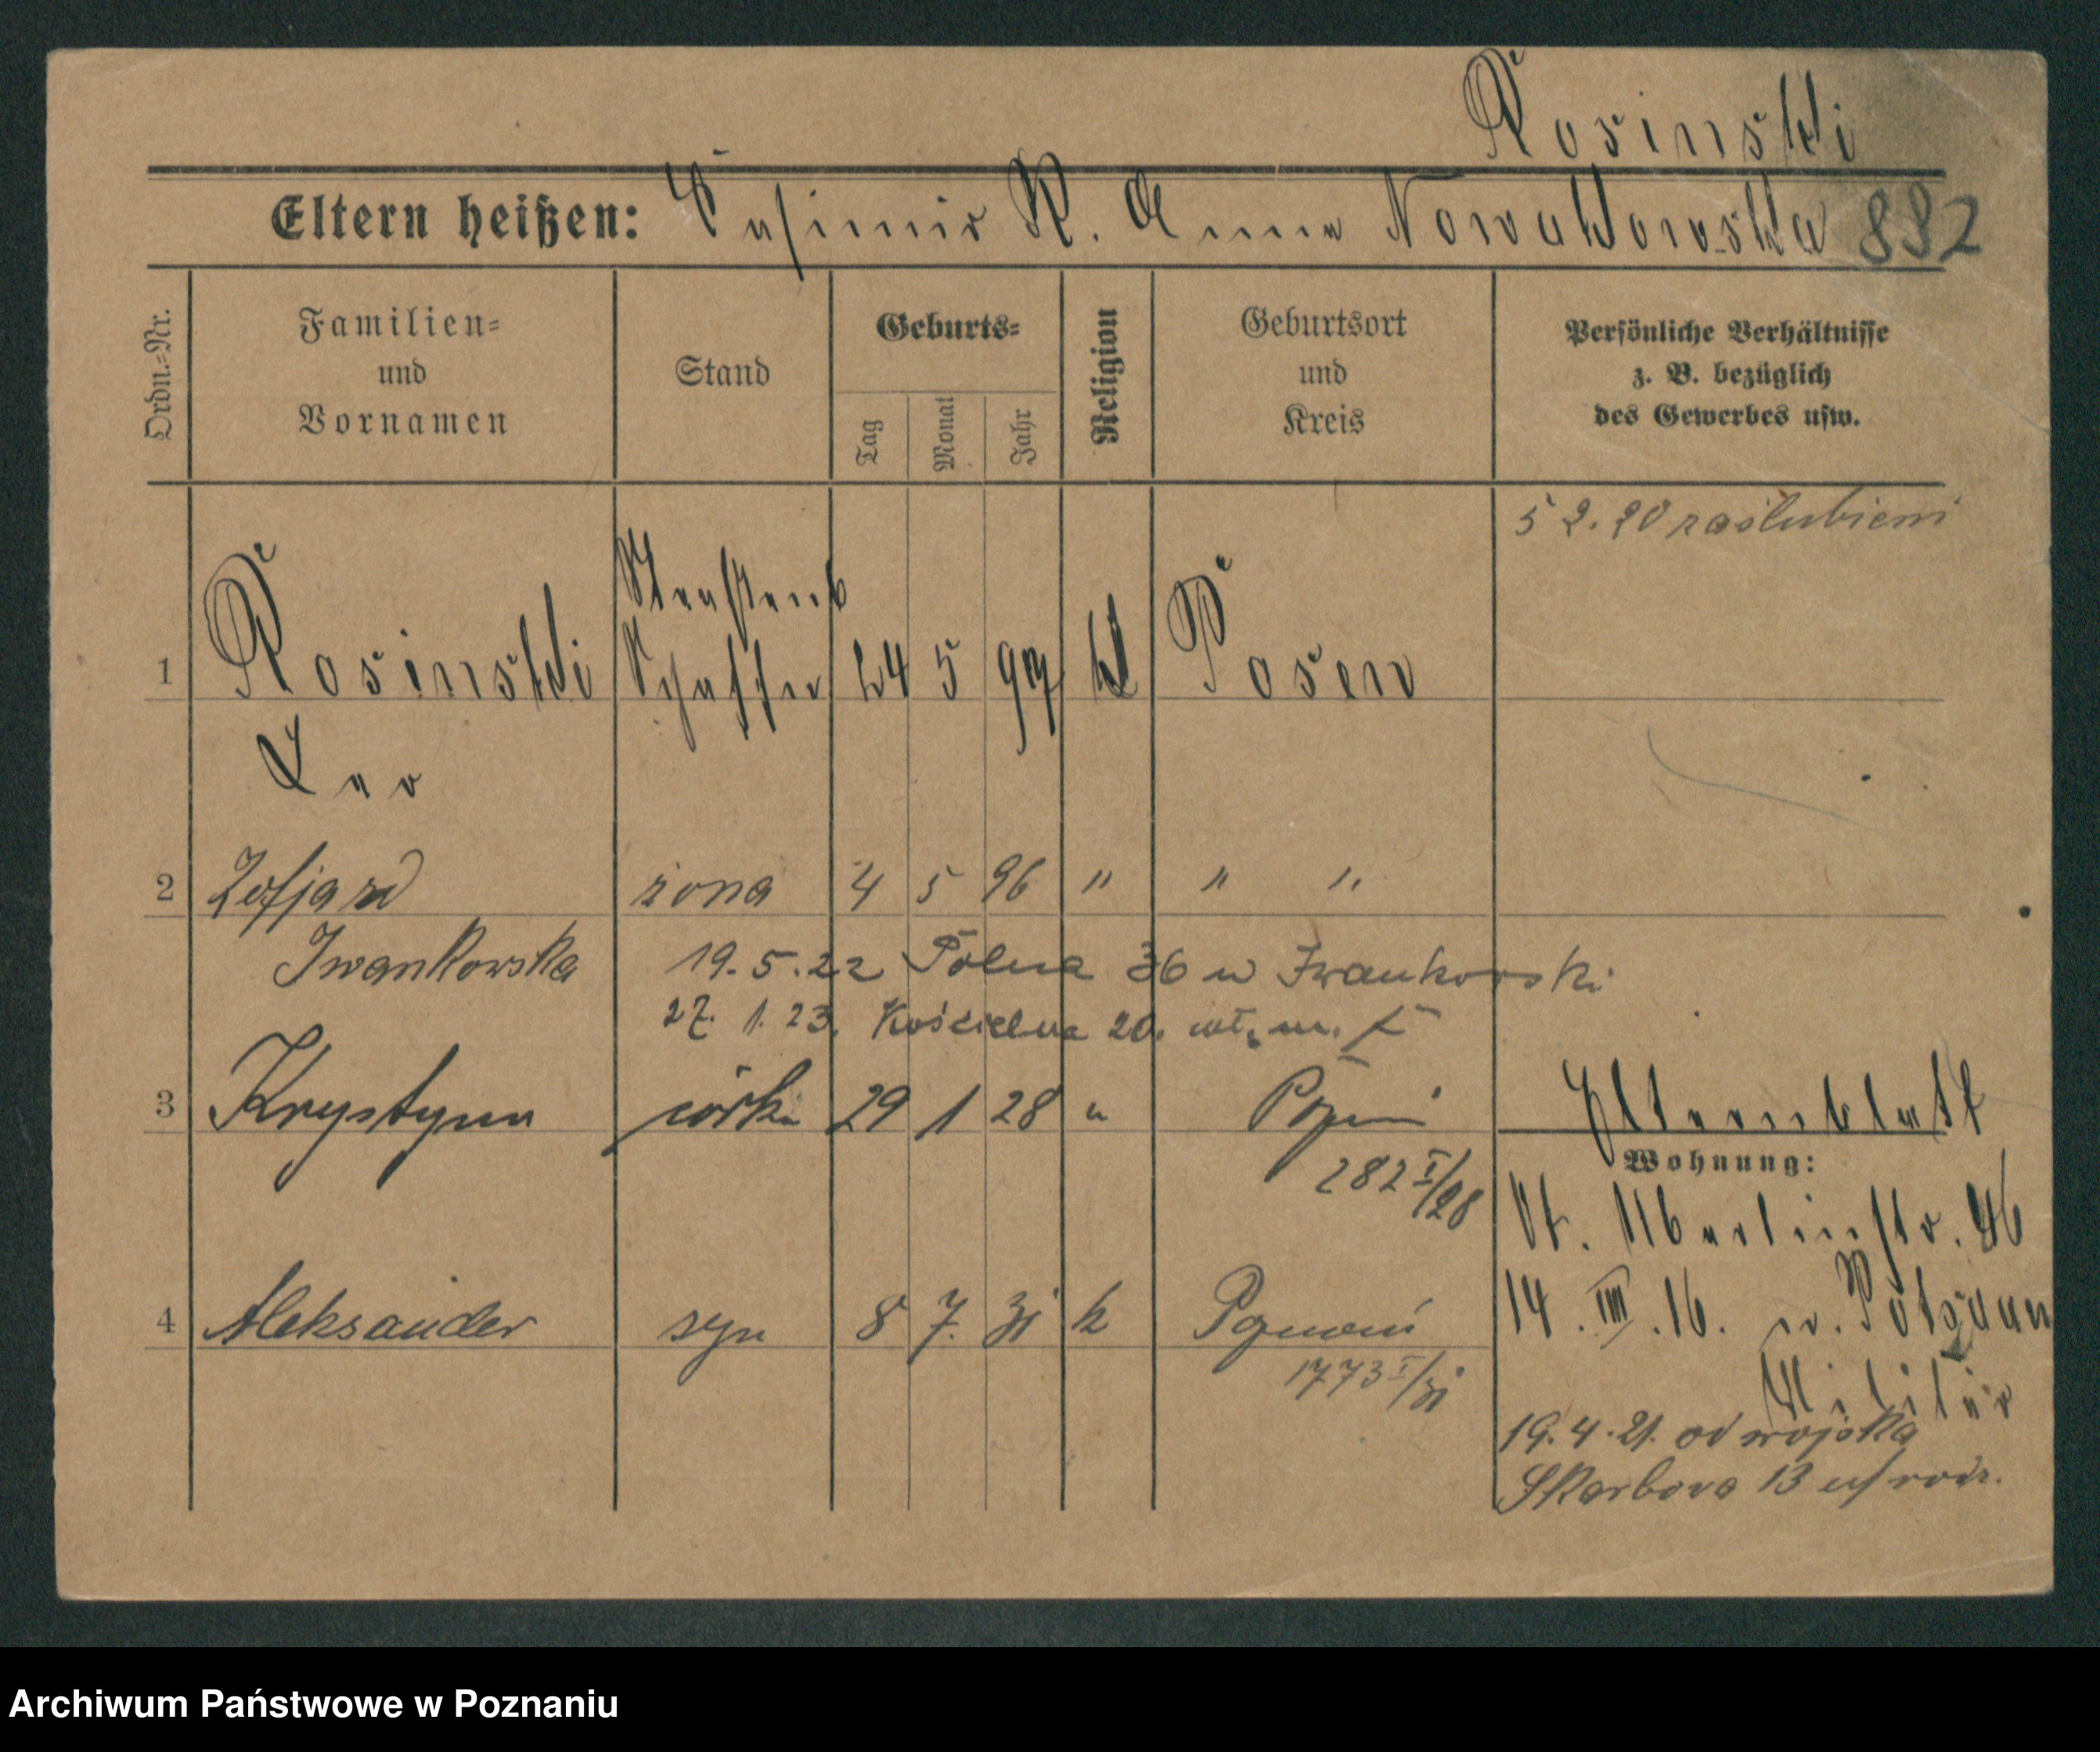 Rosinski
Eltern heißen: Casimir R. Anna Nowakowska 882
Ordn.-Nr.
Familien-
und
Vornamen
Stand
Geburts-
Tag
Monat
Jahr
Religion
Geburtsort
und
Kreis
Persönliche Verhältnisse
z. B. bezüglich
des Gewerbes usw.
5 2. 20 zaślubieni
1 Rosinski 24 5 k Posen
Leo
2 Zofja żona 4 5 96 " " "
Iwankowska
19.5.22 Polna 36 u Iwankowski
27. 1. 23. Kościelna 20.
3 Krystyna córka 29 1 28 " Pozn
282 I/28
Elternblatt
Wohnung:
4 Aleksander syn 8 7. 31 k Poznań
1773 I/31
14. .16. Potsdam
Militär
19.4.21. od wojska
Skarbowa 13 rodz.
Archiwum Państwowe w Poznaniu